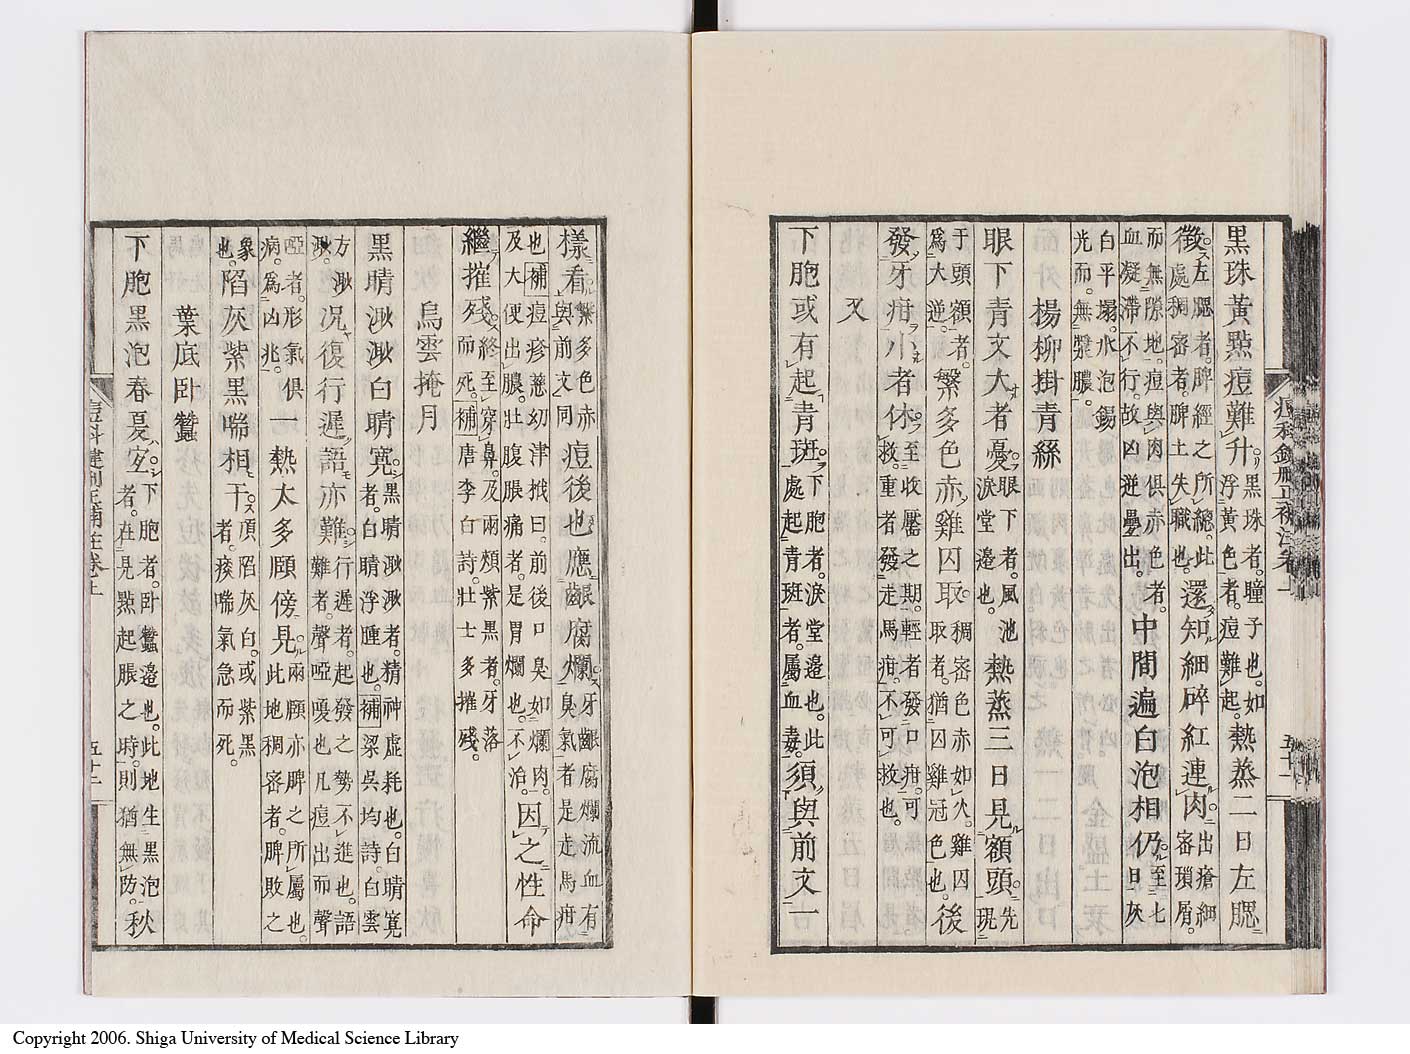 黒珠黃㸃痘難升黒珠者。瞳子也。如浮黃色者。痘難起。熱蒸二日左腮
徵左腮者。脾經之所總。此處稠密者。脾土失職也。還知細碎紅連肉出瘡細密瑣屑。
而無隙地。痘與肉俱赤色者。血凝滯不行。故凶逆疊出。中間遍白泡相仍至七日灰
白平塌。水泡錫光而。無漿膿。
楊柳掛青絲
眼下青文大者憂眼下者。風池淚堂邉也。熱蒸三日見額頭先現
于頭額者。爲大逆。繁多色亦雞囚取稠密色赤如火。雞囚取者。猶囚雞冠色也。後
發牙疳小者休至收靨之期。輕者發口疳。可救。重者發走馬疳。不可救也。
又
下胞或有起青斑下胞者。淚堂邉也。此處起青斑者。屬血毒。須與前文一
樣看繁多色赤與前文同痘後也應齦腐爛牙齦腐爛流血有臭氣者是走馬疳
也補痘疹慈幼津栰曰。前後口臭如爛肉。及大便出膿。肚腹脹痛者。是胃爛也。不治。因之性命
繼摧殘終至穿鼻。及兩頰紫黒者。牙落而死。補唐李白詩。壯士多摧殘。
烏雲掩月
黒睛渺渺白睛寛黒睛渺渺者。精神虛耗也。白睛寛者。白睛浮腫也。補梁吳均詩。白雲
方渺渺。况復行遲語亦難行遲者。起發之勢不進也。語難者。聲啞嗄也凡痘出而聲
啞者。形氣俱病。爲凶兆。一熱太多頤傍見兩頤亦脾之所屬也。此地稠密者。脾敗之
象也。陷灰紫黒喘相干頂陷灰白。或紫黒者。痰喘氣急而死。
葉底卧蠶
下胞黒泡春夏安下胞者。卧蠶邉也。此地生黒泡者。在見㸃起脹之時。則猶無防。秋
Copyright 2006. Shiga University of Medical Science Library